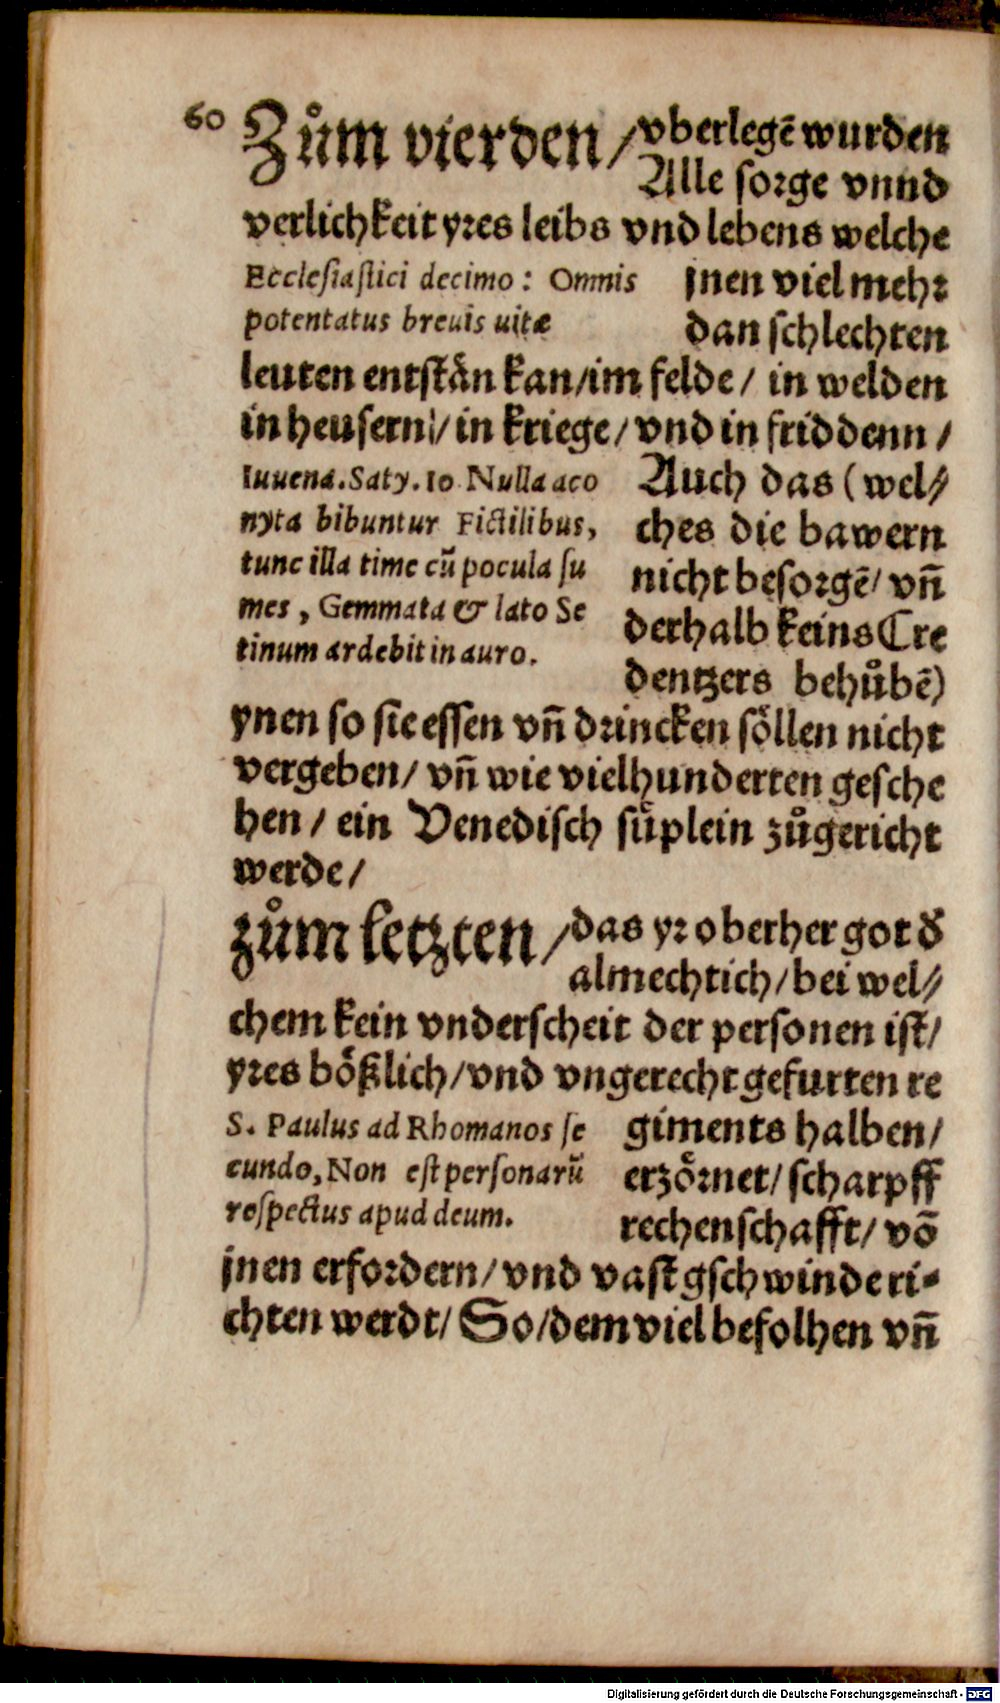 60
Zům vierden / vberlegē wurden
Alle sorge vnnd
verlichkeit yres leibs vnd lebens welche
Ecclesiastici decimo: Omnis
potentatus breuis uitæ
jnen viel mehr
dan schlechten
leuten entstån kan/im felde / in welden
in heusern / in kriege / vnd in friddenn /
Iuuena. Saty. 10 Nulla aco
nyta bibuntur Fictilibus,
tunc illa time cū pocula su
mes , Gemmata & lato Se
tinum ardebit in auro.
Auch das ( wel⸗
ches die bawern
nicht besorgē/ vñ
derhalb keins Cre
dentzers behůbē)
ynen so sie essen vñ drincken söllen nicht
vergeben/ vñ wie vielhunderten gesche
hen / ein Venedisch süplein zůgericht
werde /
zům letzten / das yr oberher got d̕
almechtich / bei wel⸗
chem kein vnderscheit der personen ist/
yres bößlich / vnd vngerecht gefurten re
S. Paulus ad Rhomanos se
cundo, Non est personarū
respectus apud deum.
giments halben/
erzörnet/ scharpff
rechenschafft/ vō
jnen erfordern/ vnd vast gschwinde ri⸗
chten werdt/ So/dem viel befolhen vñ
Digitalisierung gefördert durch die Deutsche Forschungsgemeinschaft - DFG